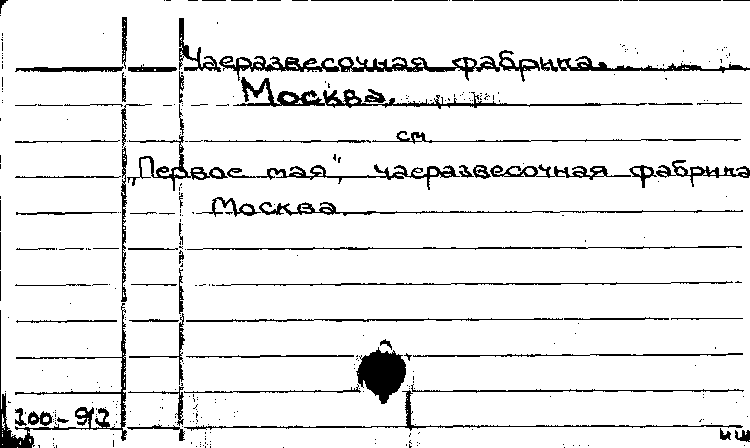 Чаеразвесочная фабрика.
Москва.
см.
„Первое мая", чаеразвесочная фабрика
Москва.